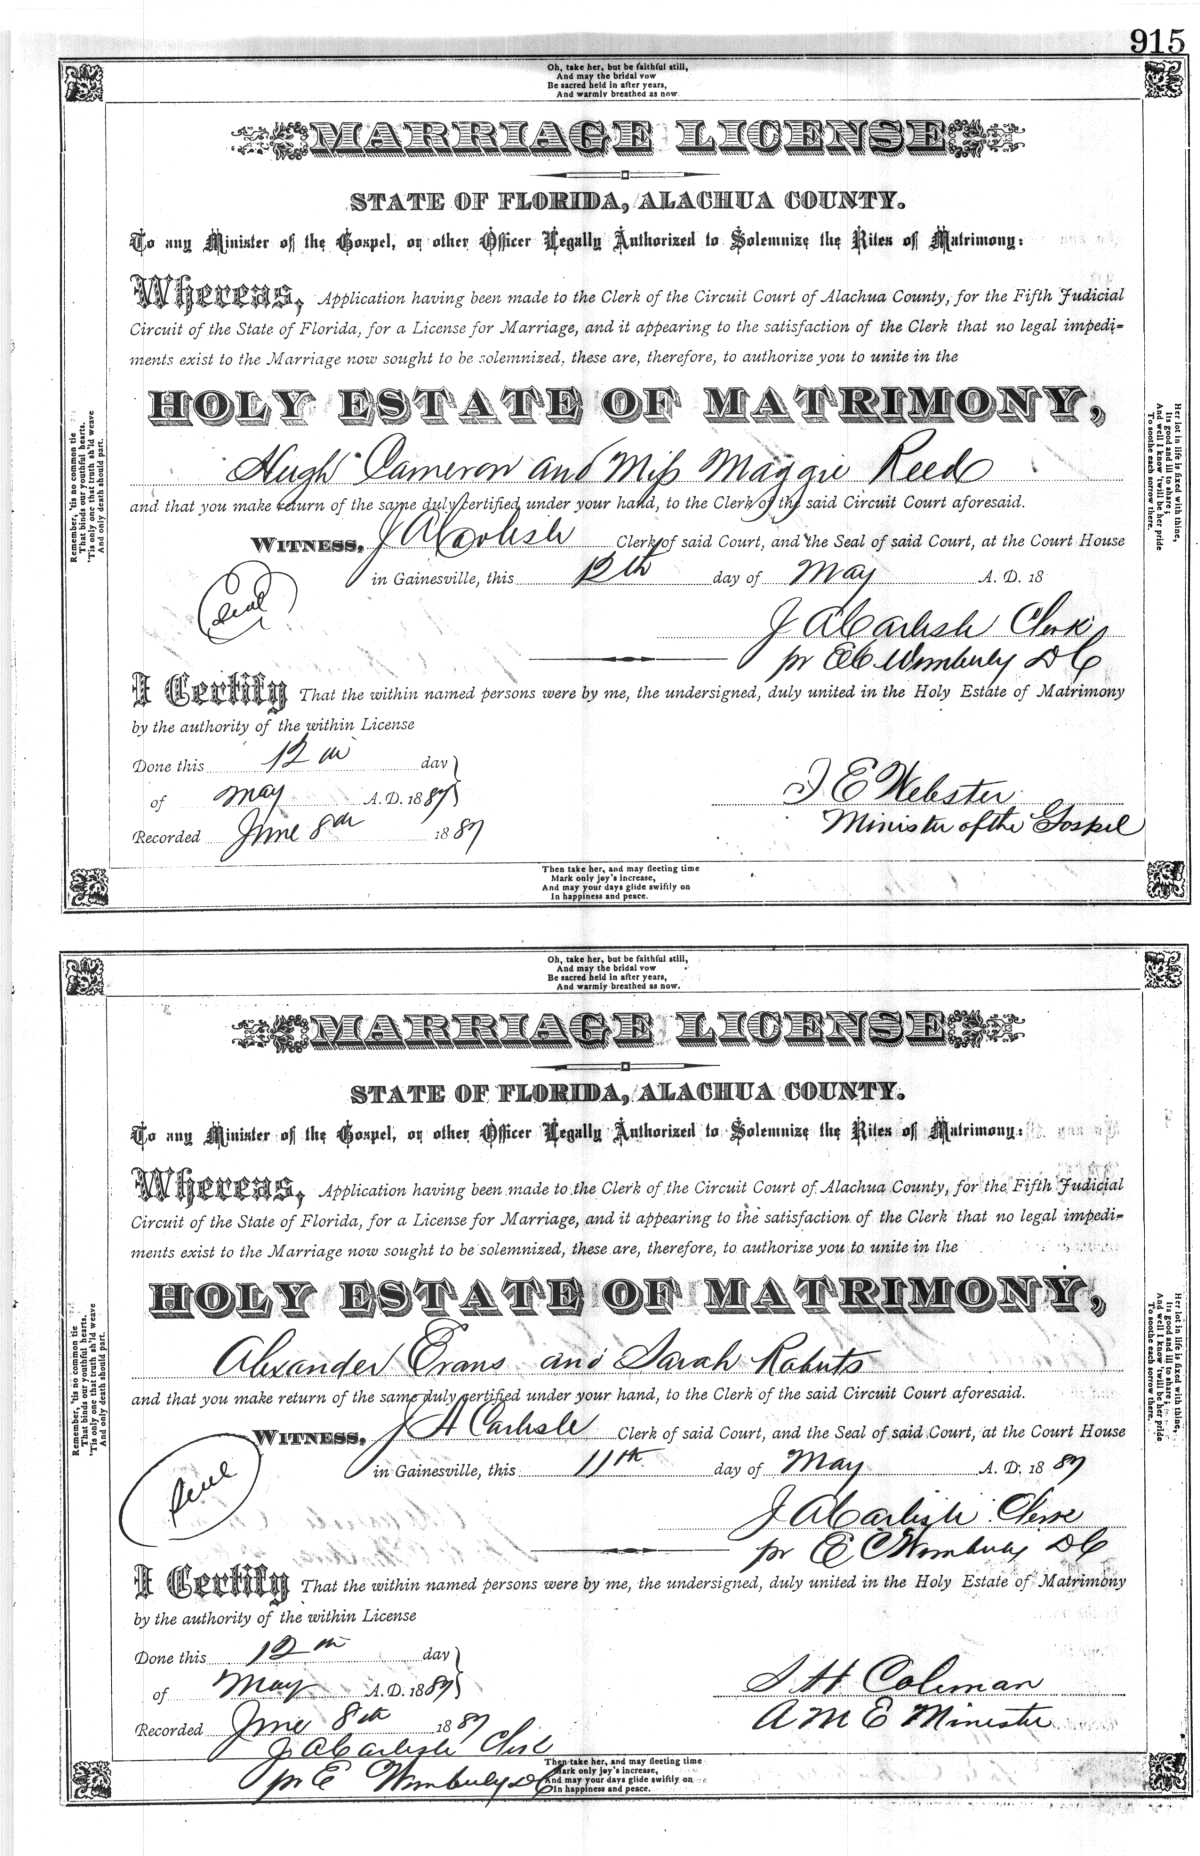 915
Oh, take her, but be faithful still,
And may the bridal vow
Be sacred held in after years,
And warmly breathed as now.
MARRIAGE LICENSE
STATE OF FLORIDA, ALACHUA COUNTY.
To any Minister of the Gospel, or other Officer Legally Authorized to Solemnize the Rites of Matrimony:
Whereas, Application having been made to the Clerk of the Circuit Court of Alachua County, for the Fifth Judicial
Circuit of the State of Florida, for a License for Marriage, and it appearing to the satisfaction of the Clerk that no legal impedi-
ments exist to the Marriage now sought to be solemnized, these are, therefore, to authorize you to unite in the
HOLY ESTATE OF MATRIMONY,
Hugh Cameron and Miss Maggie Reed
and that you make return of the same duly certified under your hand, to the Clerk of the said Circuit Court aforesaid.
WITNESS, J A Carlisle Clerk of said Court, and the Seal of said Court, at the Court House
in Gainesville, this 12th day of May A. D. 18
Seal
J A Carlisle Clerk
pr E C Wimberly D C
I Certify That the within named persons were by me, the undersigned, duly united in the Holy Estate of Matrimony
by the authority of the within License
Done this 12th day
of May A. D. 1887
Recorded June 8th 1887
J E Webster
Minister of the Gospel
Remember, 'tis no common tie
That binds our youthful hearts,
'Tis only one that truth sh'ld weave
And only death should part.
Her lot in life is fixed with thine,
Its good and ill to share;
And well I know 'twill be her pride
To soothe each sorrow there.
Then take her, and may fleeting time
Mark only joy's increase,
And may your days glide swiftly on
In happiness and peace.
Oh, take her, but be faithful still,
And may the bridal vow
Be sacred held in after years,
And warmly breathed as now.
MARRIAGE LICENSE
STATE OF FLORIDA, ALACHUA COUNTY.
To any Minister of the Gospel, or other Officer Legally Authorized to Solemnize the Rites of Matrimony:
Whereas, Application having been made to the Clerk of the Circuit Court of Alachua County, for the Fifth Judicial
Circuit of the State of Florida, for a License for Marriage, and it appearing to the satisfaction of the Clerk that no legal impedi-
ments exist to the Marriage now sought to be solemnized, these are, therefore, to authorize you to unite in the
HOLY ESTATE OF MATRIMONY,
Alexander Evans and Sarah Roberts
and that you make return of the same duly certified under your hand, to the Clerk of the said Circuit Court aforesaid.
WITNESS, J A Carlisle Clerk of said Court, and the Seal of said Court, at the Court House
in Gainesville, this 11th day of May A. D. 1887
Seal
J A Carlisle Clerk
pr E C Wimberly D C
I Certify That the within named persons were by me, the undersigned, duly united in the Holy Estate of Matrimony
by the authority of the within License
Done this 12th day
of May A. D. 1887
Recorded June 8th 1887
J A Carlisle Clerk
pr E Wimberly D C
S H Coleman
A M E Minister
Remember, 'tis no common tie
That binds our youthful hearts,
'Tis only one that truth sh'ld weave
And only death should part.
Her lot in life is fixed with thine,
Its good and ill to share;
And well I know 'twill be her pride
To soothe each sorrow there.
Then take her, and may fleeting time
Mark only joy's increase,
And may your days glide swiftly on
In happiness and peace.